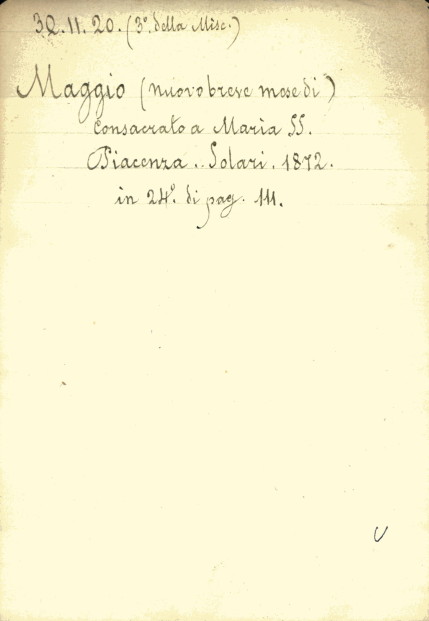 3Q.11.20. (3º. della Misc.)
Maggio (nuovo breve mese di)
consacrato a Maria SS.
Piacenza. Solari. 1872.
in 24º. di pag. 111.
U